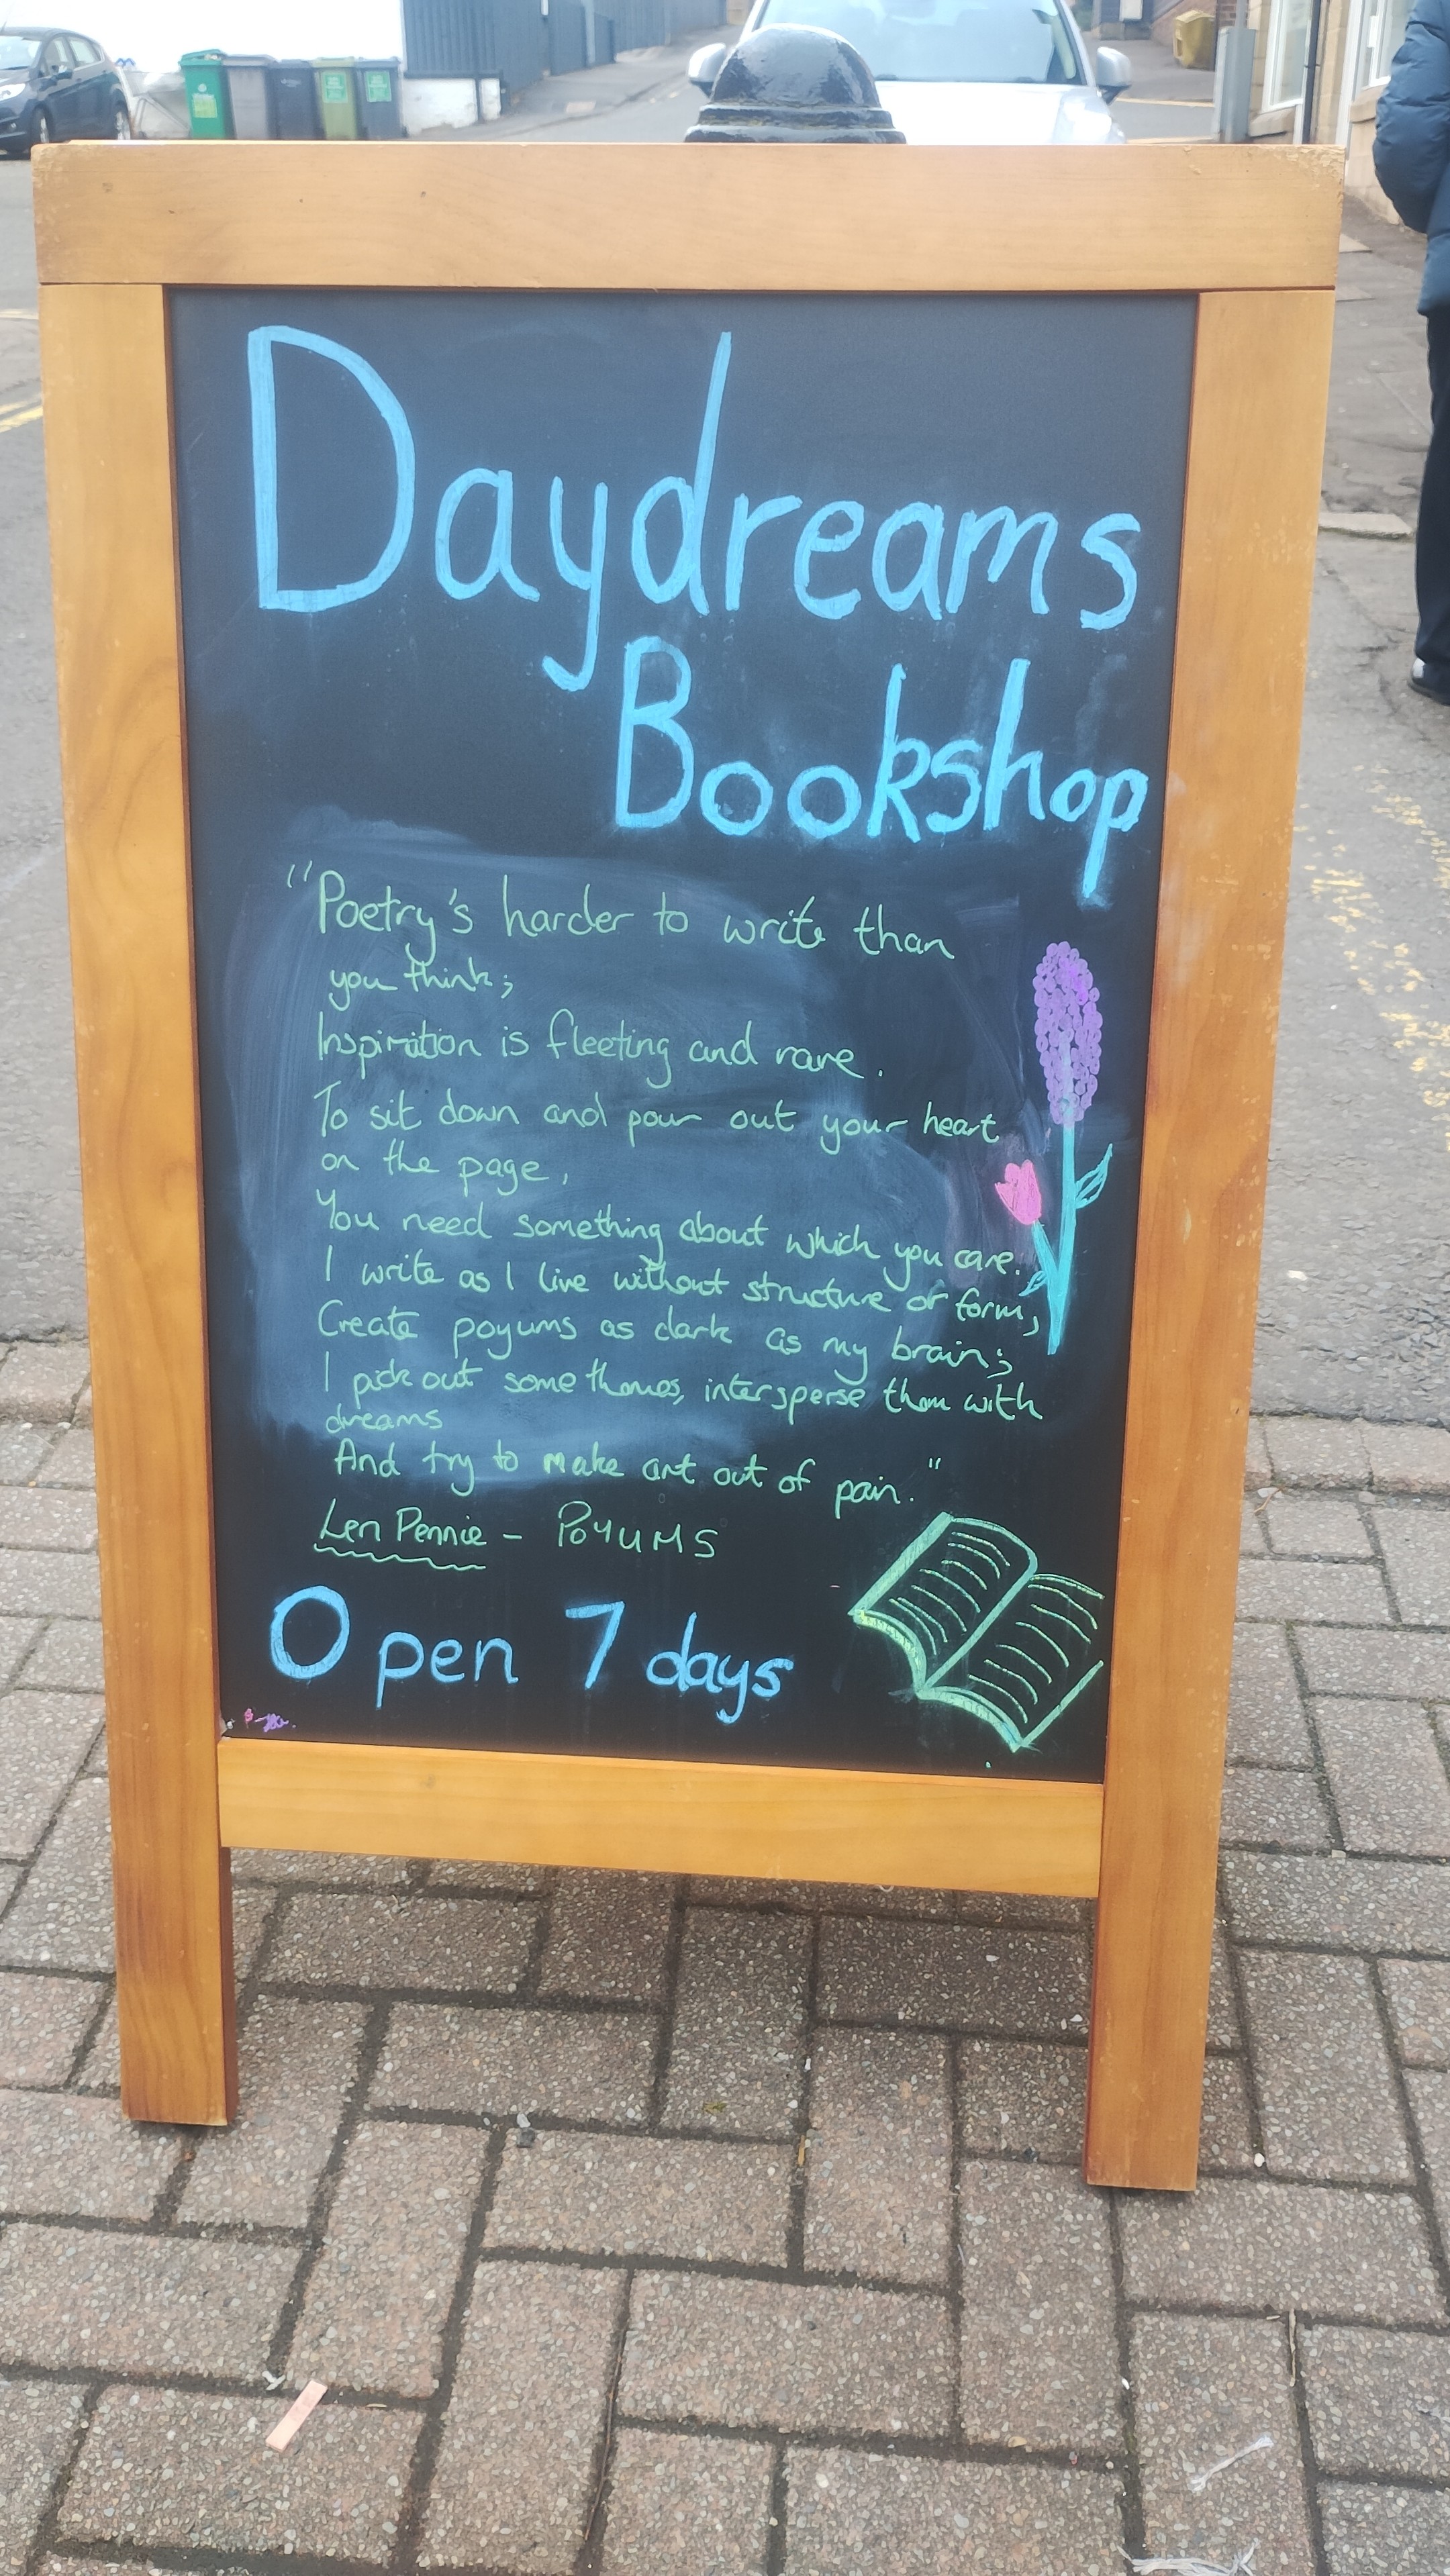 Daydreams
Bookshop
"Poetry's harder to write than
you think;
Inspiration is fleeting and rare.
To sit down and pour out your heart
on the page,
You need something about which you care.
I write as I live without structure or form,
Create poyums as dark as my brain;
I pick out some themes, intersperse them with
dreams
And try to make art out of pain."
Len Pennie - POYUMS
Open 7 days